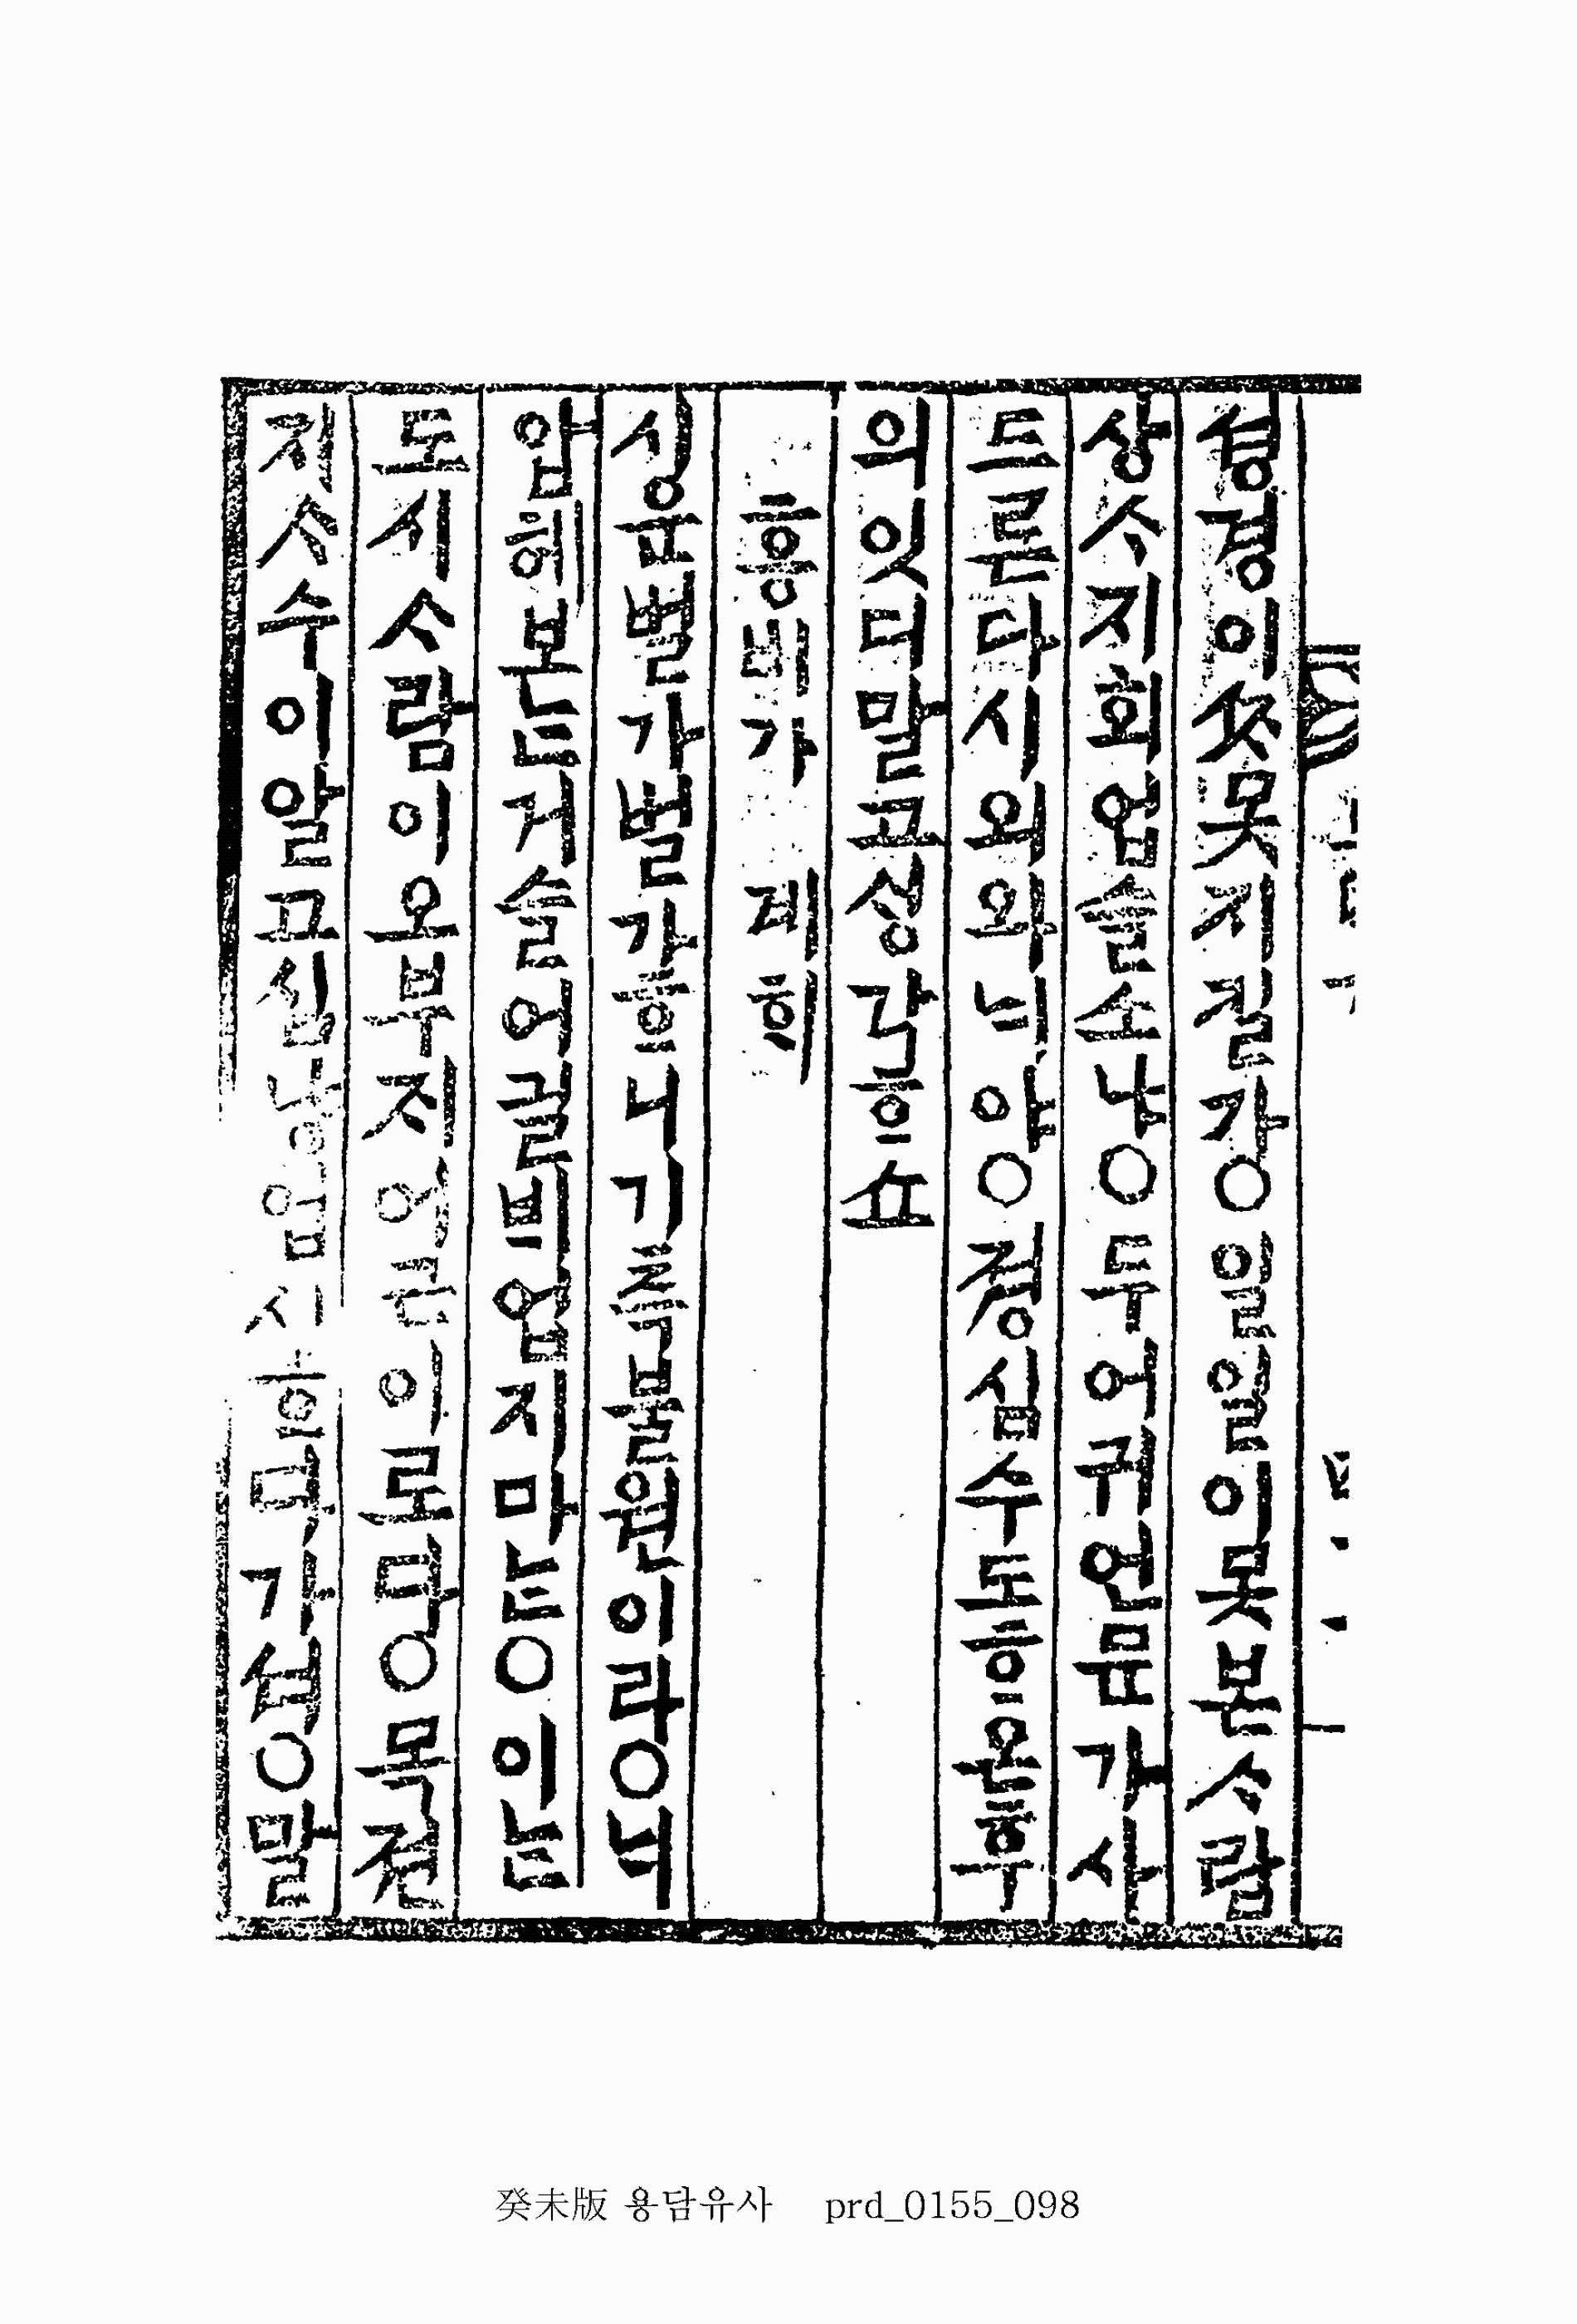 셩경이ᄶᆞ못치칠가○일일이못본ᄉᆞ람
상ᄉᆞ지회업슬소냐○두어귀언문가사
드른다시외와ᄂᆡ야○졍심수도ᄒᆞ온후
의잇디말고ᄉᆡᆼ각ᄒᆞ쇼
흥비가 계ᄒᆡ
시운벌가벌가ᄒᆞ니기측불원이라○ᄂᆡ
압헤보는거슬어긜ᄇᆡ업지마는○이는
도시ᄉᆞ람이오부ᄌᆡ어근이로다○목젼
지ᄉᆞ수이알고심냥업시ᄒᆞ다가셔○말
癸未版 용담유사 prd_0155_098